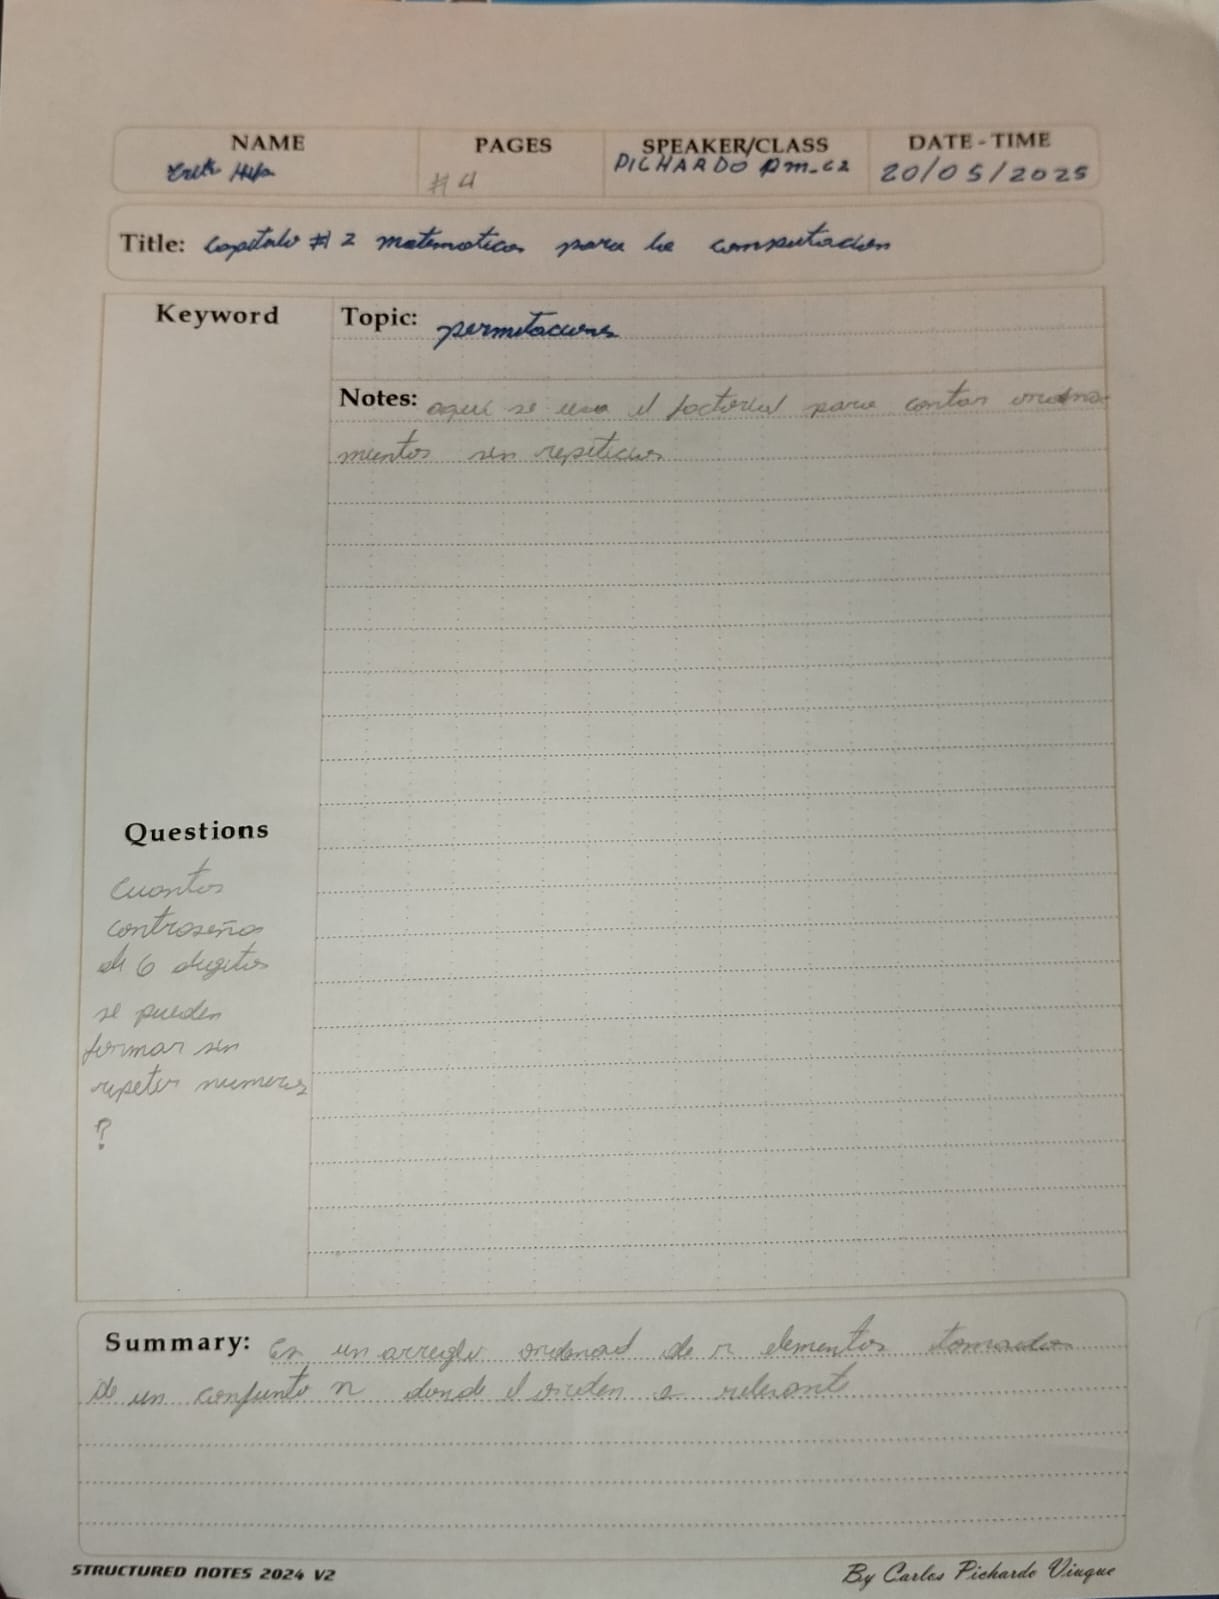 NAME
PAGES
SPEAKER/CLASS
DATE - TIME
#4
PICHARDO
20/05/2025
Title: Capitulo #2 matematicas para la computacion
Keyword
Topic: permutaciones
Notes: aqui se usa el factorial para contar ordena-
mientos sin repeticion
Questions
Cuantos
contraseñas
de 6 digitos
se pueden
formar sin
repetir numeros
?
Summary: Es un arreglo ordenad de r elementos tomados
de un conjunto n donde el orden es relevante
STRUCTURED NOTES 2024 V2
By Carlos Pichardo Viuque